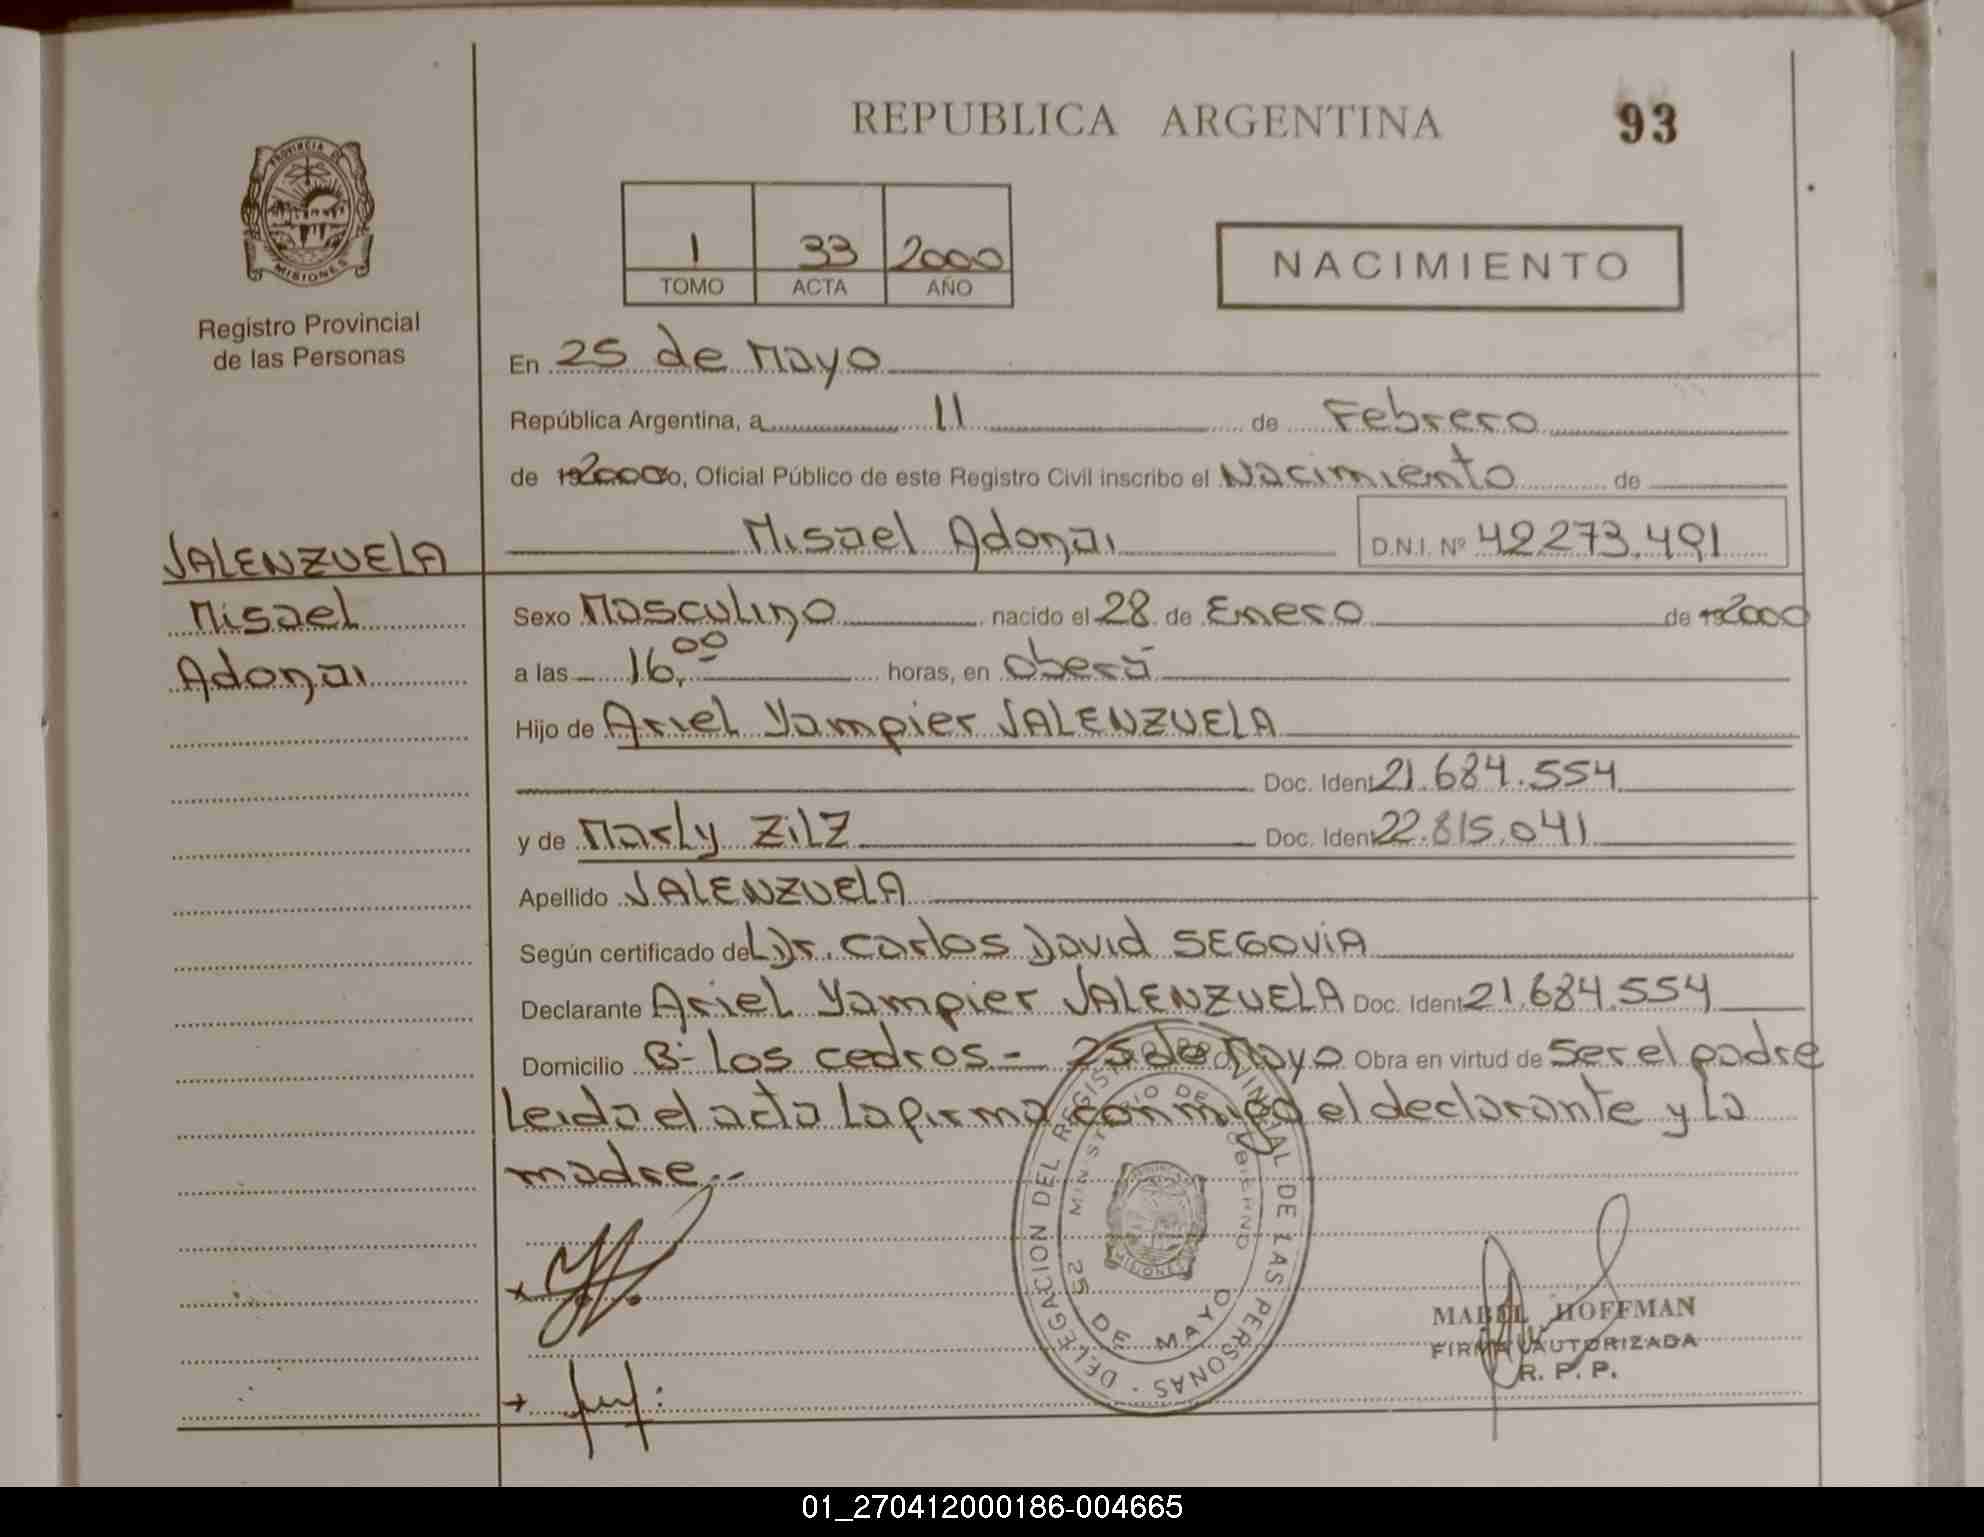 REPUBLICA ARGENTINA
93
PROVINCIA DE
MISIONES
Registro Provincial
de las Personas
1 33 2000
TOMO ACTA AÑO
NACIMIENTO
En 25 de Mayo
República Argentina, a 11 de Febrero
de 2000, Oficial Público de este Registro Civil inscribo el Nacimiento de
Misael Adonai D.N.I. Nº 42273.491
VALENZUELA
Misael
Adonai
Sexo Masculino nacido el 28 de Enero de 2000
a las 16,00 horas, en Oberá
Hijo de Ariel Yampier VALENZUELA
Doc. Ident 21.684.554
y de Marly ZilZ Doc. Ident 22.815.041
Apellido VALENZUELA
Según certificado del Dr. Carlos David SEGOViA
Declarante Ariel Yampier VALENZUELA Doc. Ident 21.684.554
Domicilio Bº Los cedros - 25 de Mayo Obra en virtud de Ser el padre
Leida el acta La firma conmigo el declarante y La
madre.-
DELEGACION DEL REGISTRO PROVINCIAL DE LAS PERSONAS
MINISTERIO DE GOBIERNO
MISIONES
25 DE MAYO
MABEL HOFFMAN
FIRMA AUTORIZADA
R. P. P.
01_270412000186-004665